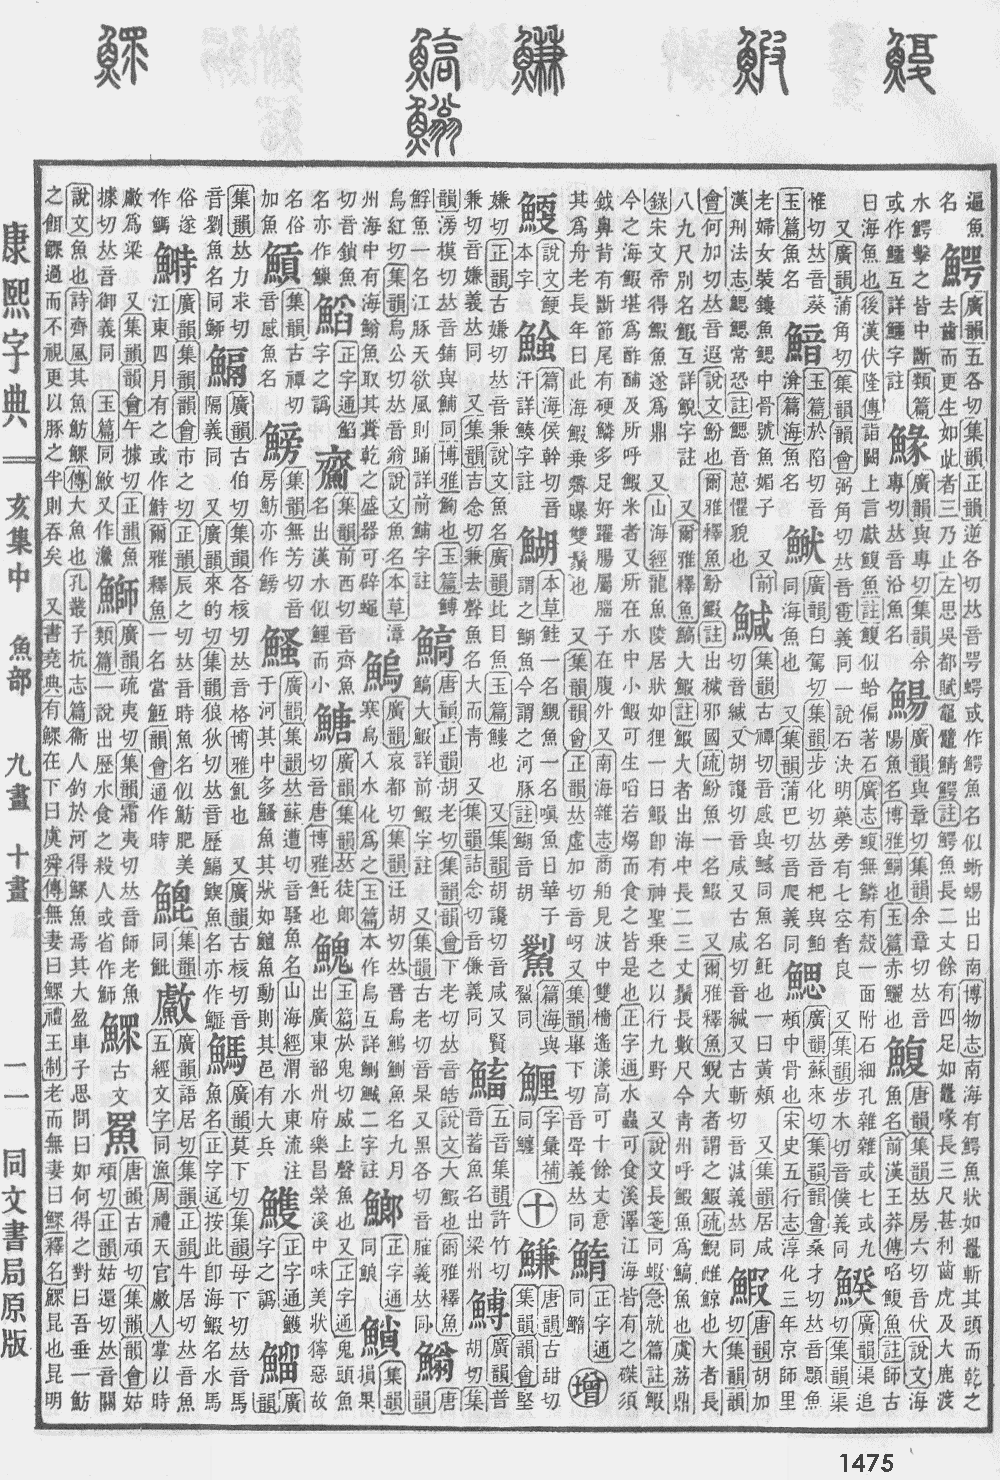 遍魚名 鰐 廣韻五各切集韻正韻逆各切𠀤音咢鰐或作鱷魚名似蜥蜴出日南博物志南海有鰐魚狀如鼉斬其頭而乾之
去齒而更生如此者三乃止左思吳都賦黿鼉鯖鰐註鰐魚長二丈餘有四足如鼉喙長三尺甚利齒虎及大鹿渡
水鰐擊之皆中斷類篇或作鱷互詳鱷字註 鰇 廣韻與專切集韻余專切𠀤音沿魚名 鰑 廣韻與章切集韻余章切𠀤音陽魚名博雅鰑也玉篇赤鱺也 鰒 唐韻集韻𠀤房六切音伏說文海魚名前漢王莽傳啗鰒魚註師古
曰海魚也後漢伏隆傳詣闕上言獻鰒魚註鰒似蛤偏著石廣志鰒無鱗有殼一面附石細孔雜雜或七或九
又廣韻蒲角切集韻韻會弼角切𠀤音雹義同一說石決明藥旁有七空者良 又集韻步木切音僕義同 鰬 廣韻渠追切集韻渠
惟切𠀤音葵玉篇魚名 鰆 玉篇於陷切音渰篇海魚名 鰍 同海魚也 廣韻白駕切集韻步化切𠀤音杷與鮊同 又集韻蒲巴切音爬義同 鰓 廣韻蘇來切集韻韻會桑才切𠀤音顋魚頰中骨也宋史五行志淳化三年京師里
老婦女裝鏤魚鰓中骨號魚媚子 又前漢刑法志鰓鰓常恐註鰓音葸懼貌也 鰔 集韻古禫切音感與鰄同魚名魟也一曰黃頰 又集韻居咸切音緘又胡讒切音咸又古咸切音緘又古斬切音減義𠀤同 鰕 唐韻胡加切集韻韻
會何加切𠀤音遐說文魵也爾雅釋魚魵鰕註出穢邪國疏魵魚一名鰕 又爾雅釋魚鯢大者謂之鰕疏鯢雌鯨也大者長
八九尺別名鰕互詳鯢字註 又爾雅釋魚鰝大鰕註鰕大者出海中長二三丈鬚長數尺今青州呼鰕魚爲鰝魚也虞荔鼎
錄宋文帝得鰕魚遂爲鼎 又山海經龍魚陵居狀如狸一曰鰕即有神聖乘之以行九野 又說文長箋同蝦急就篇註鰕
今之海鰕堪爲酢酺及所呼鰕米者又所在水中小鰕可生啗若煼而食之皆是也正字通水蟲可食溪澤江海皆有之磔須
鉞鼻背有斷節尾有硬鱗多足好躍腸屬腦子在腹外又南海雜志商舶見波中雙檣遙漾高可十餘丈意
其爲舟老長年曰此海鰕乘霽曝雙鬚也 又集韻韻會正韻𠀤虛加切音岈又集韻舉下切音斝義𠀤同 鰖 正字通同鰖 增
鯾 說文鯁本字 鯩 篇海侯幹切音汗詳鰶字註 鰗 本草鮭一名鰗魚一名嗔魚日華子謂之鰗魚今謂之河豚註鰗音胡 鰲 篇海與鯬同 鱷 字彙補同鱷 十 鰜 唐韻古甜切集韻韻會堅
嫌切正韻古嫌切𠀤音兼說文魚名廣韻比目魚玉篇鰜也 又集韻胡讒切音咸又賢兼切音嫌義𠀤同 又集韻吉念切兼去聲魚名大而青 又集韻詰念切音傔義同 鰡 五音集韻許竹切音蓄魚名出梁州 鱄 廣韻普胡切集
韻滂模切𠀤音鋪與鯆同博雅鯆也玉篇鱄鯙魚一名江豚天欲風則踊詳前鯆字註 鰝 唐韻正韻胡老切集韻韻會下老切𠀤音皓說文大鰕也爾雅釋魚鰝大鰕詳前鰕字註 又集韻古老切音杲又黑各切音臛義𠀤同 鰯 唐韻
烏紅切集韻烏公切𠀤音翁說文魚名本草漳州海中有海鰯魚取其糞乾之盛器可辟蠅 鰞 廣韻哀都切集韻汪胡切𠀤音烏鰞鰂魚名九月寒烏入水化爲之玉篇本作烏互詳鰂鰄二字註 鰤 正字通同鯸 鎖 集韻損果
切音鎖魚名亦作鱢 鰡 正字通鰌字之譌 鰽 集韻前西切音齊魚名出漢水似鯉而小 鰫 廣韻集韻𠀤徒郎切音唐博雅魠也 鬼 玉篇於鬼切威上聲魚也又正字通鬼頭魚出廣東韶州府樂昌榮溪中味美狀獰惡故
名俗加魚 鰿 集韻古禫切音感魚名 鰟 集韻無芳切音房魴亦作鰟 鰠 廣韻集韻𠀤蘇遭切音騷魚名山海經渭水東流注于河其中多鰠魚其狀如鱣魚動則其邑有大兵 鱯 正字通鱯字之譌 鰡 廣韻
集韻𠀤力求切音劉魚名同鰤 鬲 廣韻古伯切集韻各核切𠀤音格博雅魟也 又廣韻古核切音隔義同 又廣韻來的切集韻狼狄切𠀤音歷鰏鰅魚名亦作鱺 鰢 廣韻莫下切集韻母下切𠀤音馬魚名正字通按此即海鰕名水馬
俗遂作鰢 鰣 廣韻集韻韻會市之切正韻辰之切𠀤音時魚名似魴肥美江東四月有之或作鮬爾雅釋魚一名當魱韻會通作時 鯤 集韻同䱾 鱻 廣韻語居切集韻正韻牛居切𠀤音魚五經文字同漁周禮天官㱃人掌以時
㱃爲梁 又集韻韻會午據切正韻魚據切𠀤音御義同 玉篇同䰻又作瀺 鰤 廣韻疏夷切集韻霜夷切𠀤音師老魚類篇一說出歷水食之殺人或省作鰤 鰥 古文 𩵒 唐韻古頑切集韻韻會姑頑切正韻姑還切𠀤音關
說文魚也詩齊風其魚魴鰥傳大魚也孔叢子抗志篇衞人釣於河得鰥魚焉其大盈車子思問曰如何得之對曰吾垂一魴
之餌鰥過而不視更以豚之半則吞矣 又書堯典有鰥在下曰虞舜傳無妻曰鰥禮王制老而無妻曰鰥釋名鰥昆也昆明
康熙字典 亥集中 魚部 九畫 十畫 二一 同文書局原版
1475